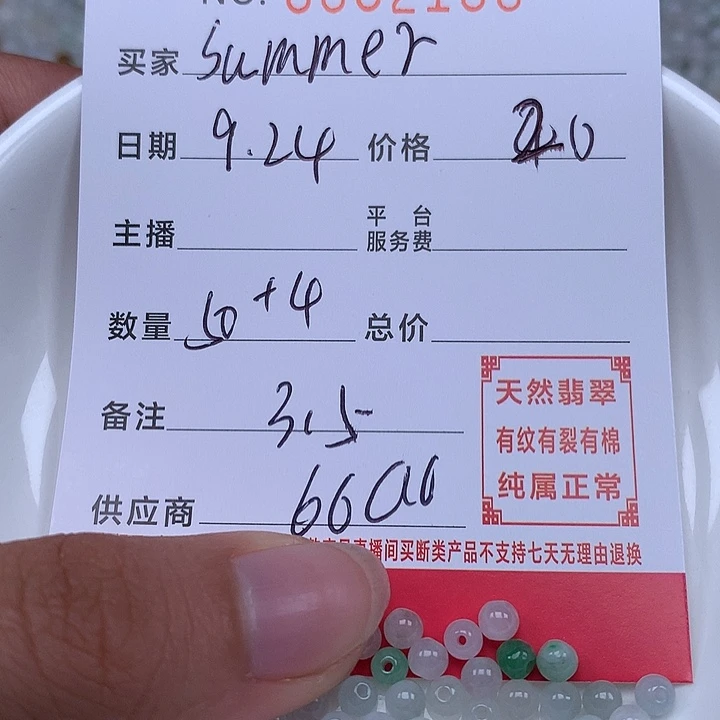 买家 Summer
日期 9.24 价格 20
主播 平台服务费
数量 50+4 总价
备注 3.5
供应商
天然翡翠
有纹有裂有棉
纯属正常
播间买断类产品不支持七天无理由退换